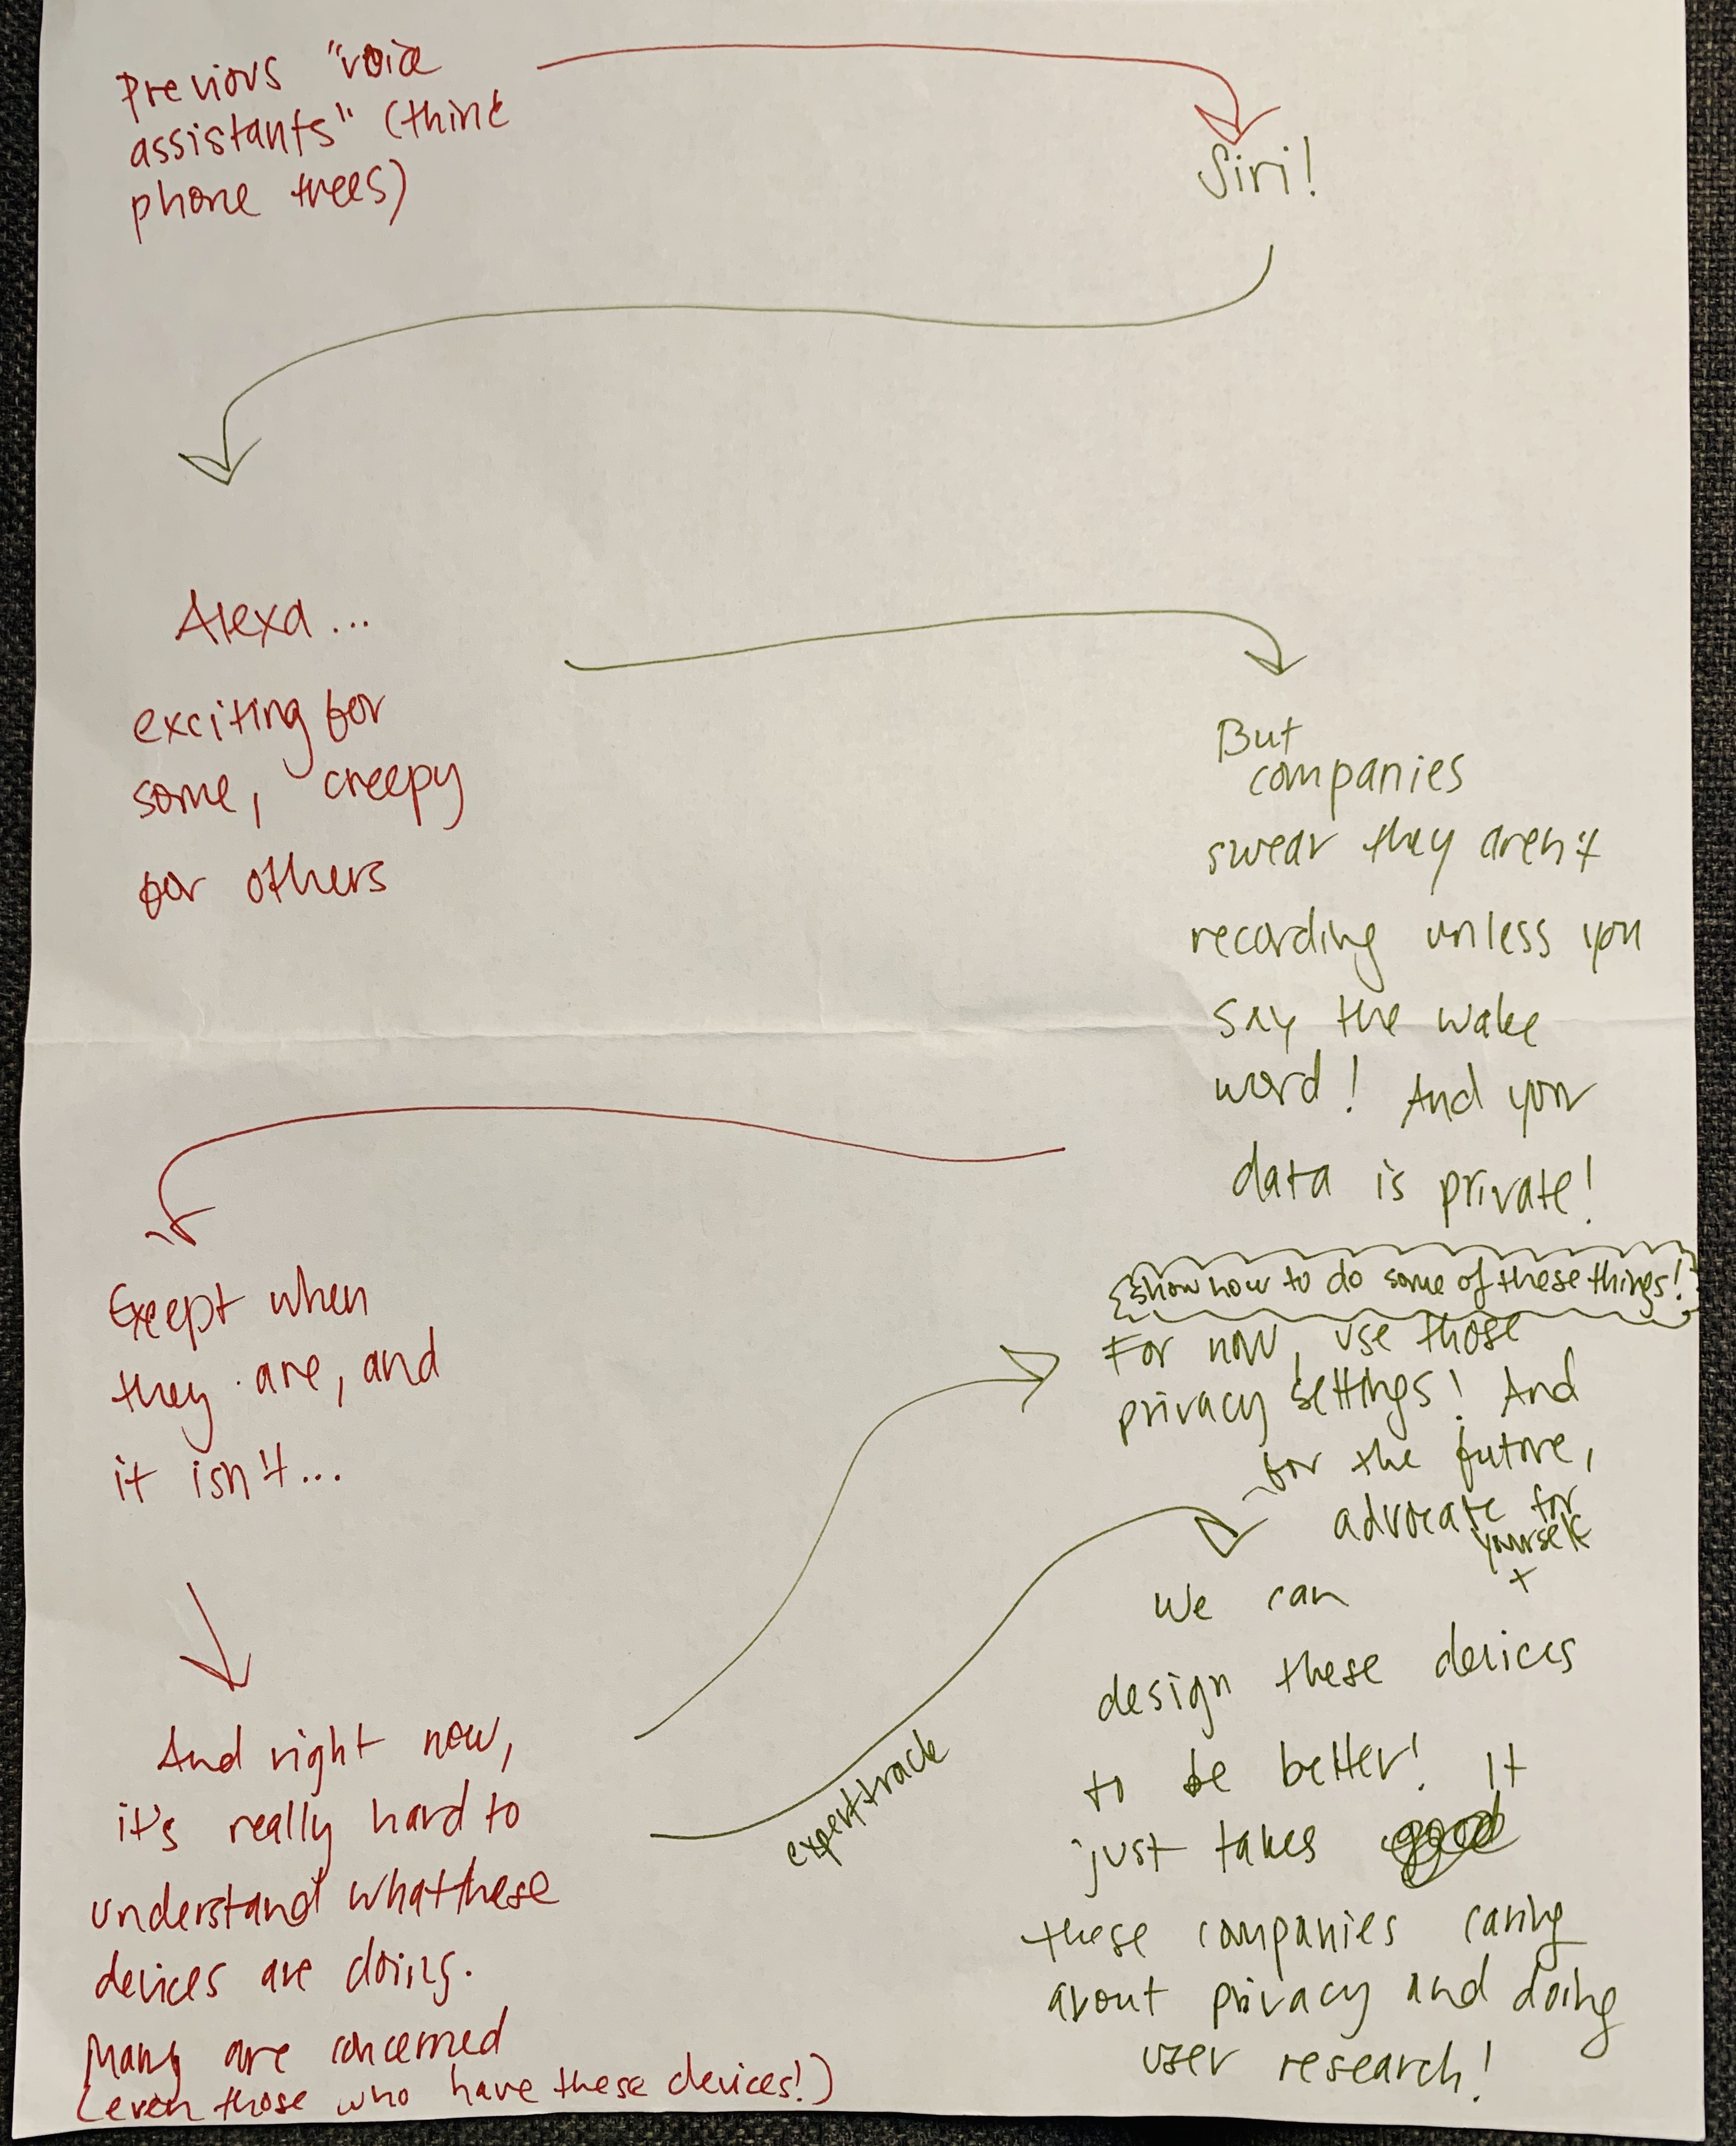 Previous "voice
assistants" (think
phone trees)
Siri!
Alexa...
exciting for
some, creepy
for others
But
companies
swear they aren't
recording unless you
say the wake
word! And your
data is private!
Except when
they are, and
it isn't...
And right now,
it's really hard to
understand what these
devices are doing.
Many are concerned
(even those who have these devices!)
show how to do some of these things!
For now, use those
privacy settings! And
for the future,
advocate for
yourself
+
expert track
We can
design these devices
to be better! It
just takes good
these companies caring
about privacy and doing
user research!